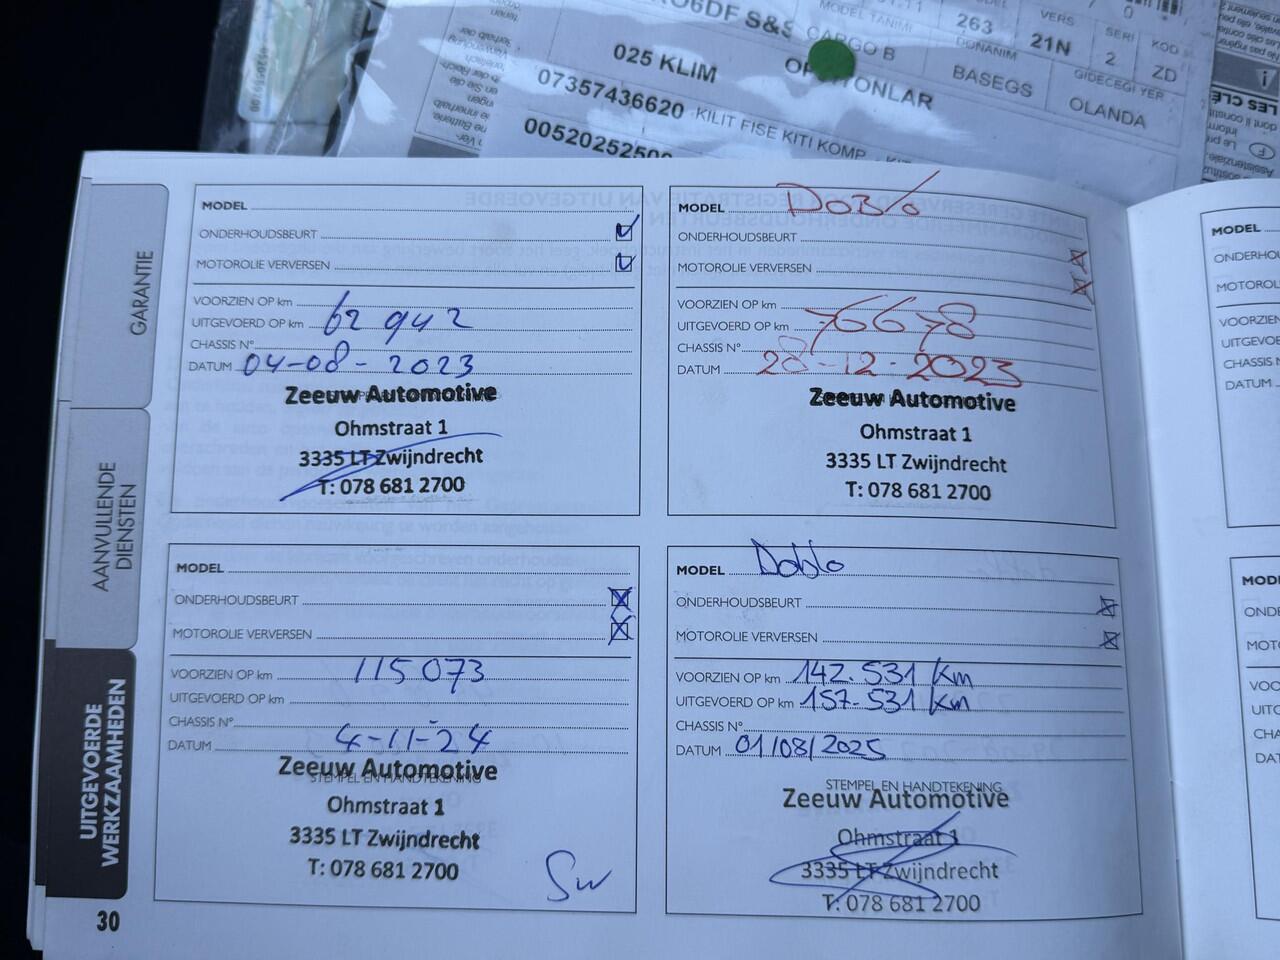 RO6DF S&S
MODEL TANIMI
CARGO B
263
DONANIM
VERS
21N
SERI
2
KOD
ZD
025 KLIM
BASEGS
GIDECEGI YER
OLANDA
07357436620
KILIT FISE KITI KOMP
00520252500
LES CLE
GARANTIE
AANVULLENDE
DIENSTEN
UITGEVOERDE
WERKZAAMHEDEN
30
MODEL
ONDERHOUDSBEURT
MOTOROLIE VERVERSEN
VOORZIEN OP km
UITGEVOERD OP km 62 942
CHASSIS N°
DATUM 04-08-2023
Zeeuw Automotive
Ohmstraat 1
3335 LT Zwijndrecht
T: 078 681 2700
MODEL Doblo
ONDERHOUDSBEURT
MOTOROLIE VERVERSEN
VOORZIEN OP km
UITGEVOERD OP km 76678
CHASSIS N°
DATUM 28-12-2023
Zeeuw Automotive
Ohmstraat 1
3335 LT Zwijndrecht
T: 078 681 2700
MODEL
ONDERHOUDSBEURT
MOTOROLIE VERVERSEN
VOORZIEN OP km 115 073
UITGEVOERD OP km
CHASSIS N°
DATUM 4-11-24
STEMPEL EN HANDTEKENING
Zeeuw Automotive
Ohmstraat 1
3335 LT Zwijndrecht
T: 078 681 2700
MODEL Doblo
ONDERHOUDSBEURT
MOTOROLIE VERVERSEN
VOORZIEN OP km 142.531 km
UITGEVOERD OP km 157.531 km
CHASSIS N°
DATUM 01/08/2025
STEMPEL EN HANDTEKENING
Zeeuw Automotive
Ohmstraat 1
3335 LT Zwijndrecht
T: 078 681 2700
MODEL
CHASSIS
DATUM